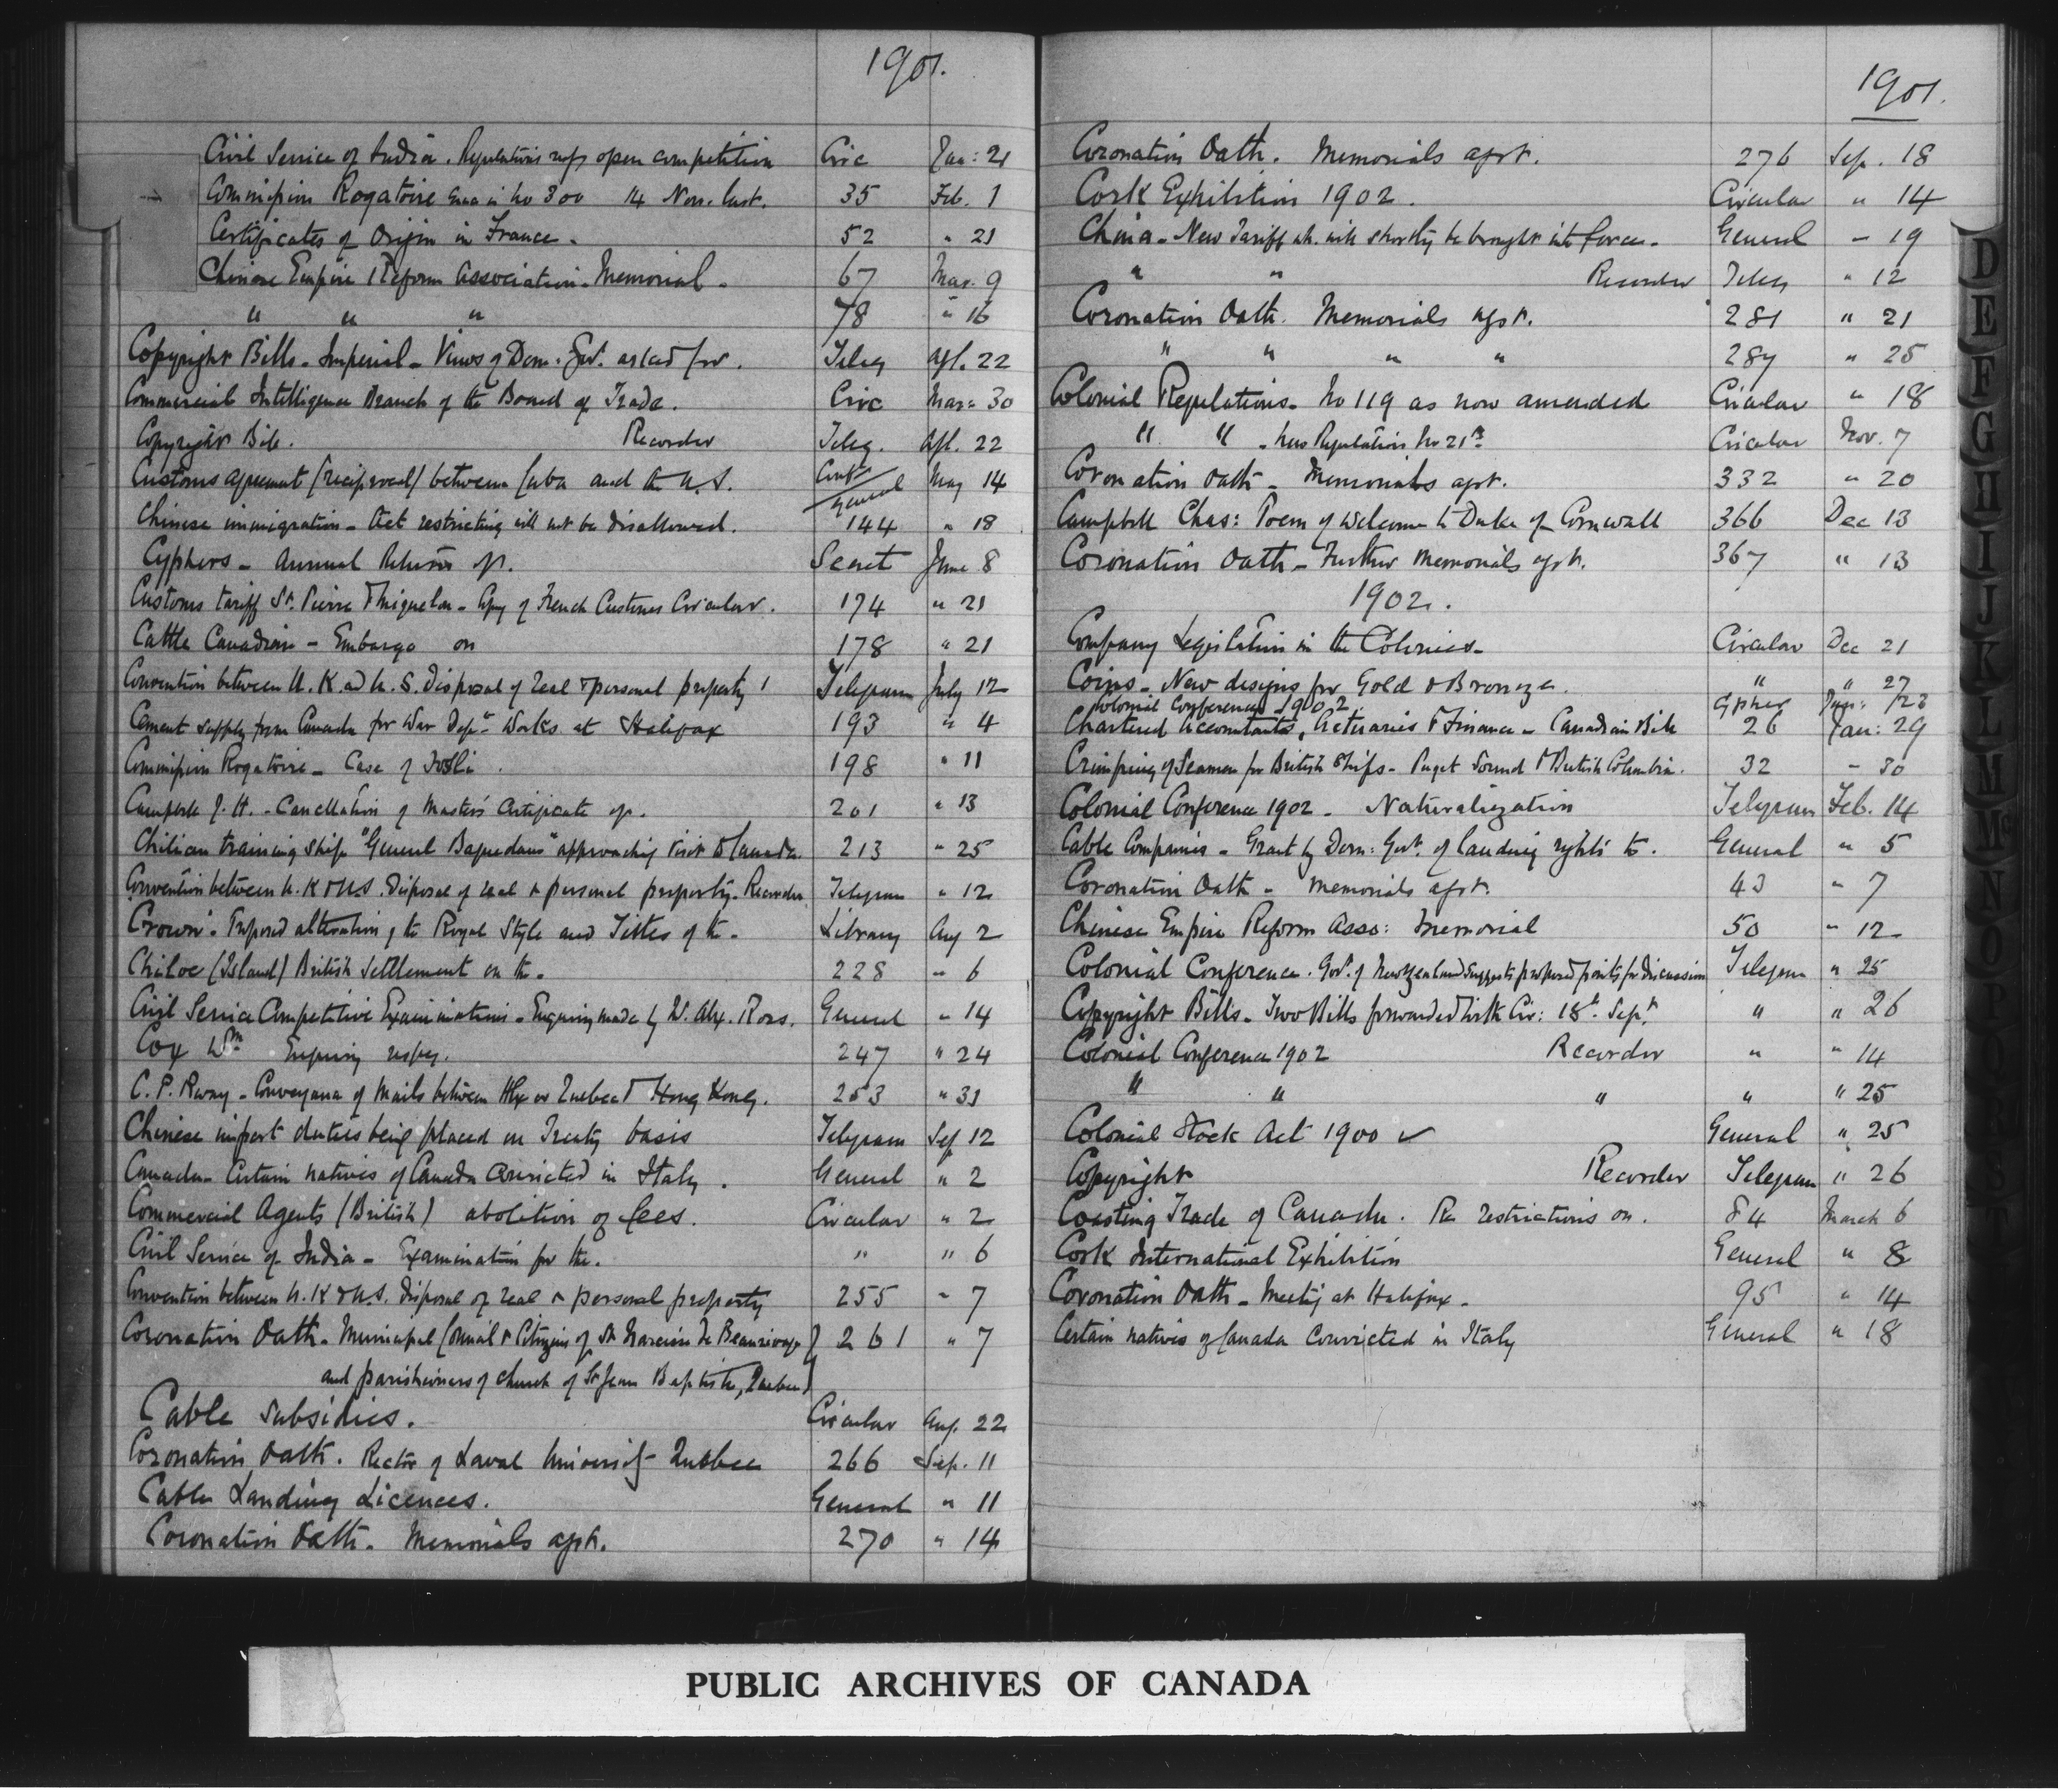 1901.
Civil Service of India. Regulations resp. open competition Circ Jan: 21
Commission Rogatoire in No 300 14 Nov. last. 35 Feb. 1
Certificates of Origin in France. 52 " 21
Chinese Empire Reform Association. Memorial. 67 Mar. 9
" " " 78 " 16
Copyright Bills. Imperial. Views of Dom. Govt. asked for. Teleg Apl. 22
Commercial Intelligence Branch of the Board of Trade. Circ Mar: 30
Copyright Bill. Recorder Teleg. Apl. 22
Customs agreement (reciprocal) between Cuba and the U.S. General May 14
Chinese immigration. Act restricting will not be disallowed. 144 " 18
Cyphers. Annual Returns of. Secret June 8
Customs tariff St. Pierre & Miquelon. Copy of French Customs Circular. 174 " 21
Cattle Canadian - Embargo on 178 " 21
Convention between U.K and U.S. Disposal of real & personal property Telegram July 12
Cement supply from Canada for War Dept. Works at Halifax 193 " 4
Commission Rogatoire - Case of 198 " 11
Campbell J. H. - Cancellation of Master's Certificate of. 201 " 13
Chilian training ship "General Baquedano" approaching visit to Canada 213 " 25
Convention between U.K & U.S. Disposal of real & personal property. Recorder Telegram " 12
Crown. Proposed alteration of the Royal Style and Titles of the. Library Aug 2
Chiloe (Island) British Settlement on the. 228 " 6
Civil Service Competitive Examinations. Enquiry made by W. Alex. Ross. General " 14
Cox Wm Enquiry respg. 247 " 24
C. P. Rway. Conveyance of Mails between Hfx or Quebec & Hong Kong. 253 " 31
Chinese import duties being placed on Treaty basis Telegram Sep 12
Canada. Certain natives of Canada convicted in Italy. General " 2
Commercial Agents (British) abolition of fees. Circular " 2
Civil Service of India. Examination for the. " " 6
Convention between U.K & U.S. Disposal of real & personal property 255 " 7
Coronation Oath. Municipal Council & Citizens of St 261 " 7
and parishioners of church of St Jean Baptiste, Quebec
Cable subsidies. Circular Aug. 22
Coronation Oath. Rector of Laval University Quebec 266 Sep. 11
Cable Landing Licences. General " 11
Coronation Oath. Memorials agst. 270 " 14
1901.
Coronation Oath. Memorials agst. 276 Sep. 18
Cork Exhibition 1902. Circular " 14
China. New Tariff wh. will shortly be brought into force. General " 19
" " Recorder Teleg " 12
Coronation Oath. Memorials agst. 281 " 21
" " " " 287 " 25
Colonial Regulations. No 119 as now amended Circular " 18
" " . New Regulation No 21a Circular Nov. 7
Coronation Oath - Memorials agst. 332 " 20
Campbell Chas: Poem of Welcome to Duke of Cornwall 366 Dec 13
Coronation Oath - Further Memorials agst. 367 " 13
1902.
Company Legislation in the Colonies. Circular Dec 21
Coins - New designs for Gold & Bronze. " " 27
Colonial Conference 1902. Cypher Jan: 23
Chartered Accountants, Actuaries & Finance - Canadian Bill 26 Jan: 29
Crimping of Seamen for British Ships - Puget Sound & British Columbia. 32 " 30
Colonial Conference 1902 - Naturalization Telegram Feb. 14
Cable Companies - Grant by Dom: Govt. of landing rights to. General " 5
Coronation Oath - Memorials agst. 43 " 7
Chinese Empire Reform Asso: Memorial 50 " 12
Colonial Conference. Govt. of New Zealand suggests proposed points for discussion Telegram " 25
Copyright Bills. Two Bills forwarded with Cir: 18th Sept. " " 26
Colonial Conference 1902 Recorder " " 14
" " " " " 25
Colonial Stock Act 1900 ✓ General " 25
Copyright Recorder Telegram " 26
Coasting Trade of Canada. Re restrictions on. 84 March 6
Cork International Exhibition General " 8
Coronation Oath - Meeting at Halifax. 95 " 14
Certain natives of Canada convicted in Italy General " 18
D
E
F
G
H
I
J
K
L
M
Mc
N
O
P
PUBLIC ARCHIVES OF CANADA